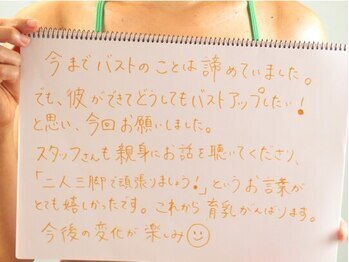 今までバストのことは諦めていました。
でも、彼ができてどうしてもバストアップしたい！
と思い、今回お願いしました。
スタッフさんも親身にお話を聴いてくださり、
「二人三脚で頑張りましょう！」というお言葉が
とても嬉しかったです。これから育乳がんばります。
今後の変化が楽しみ☺